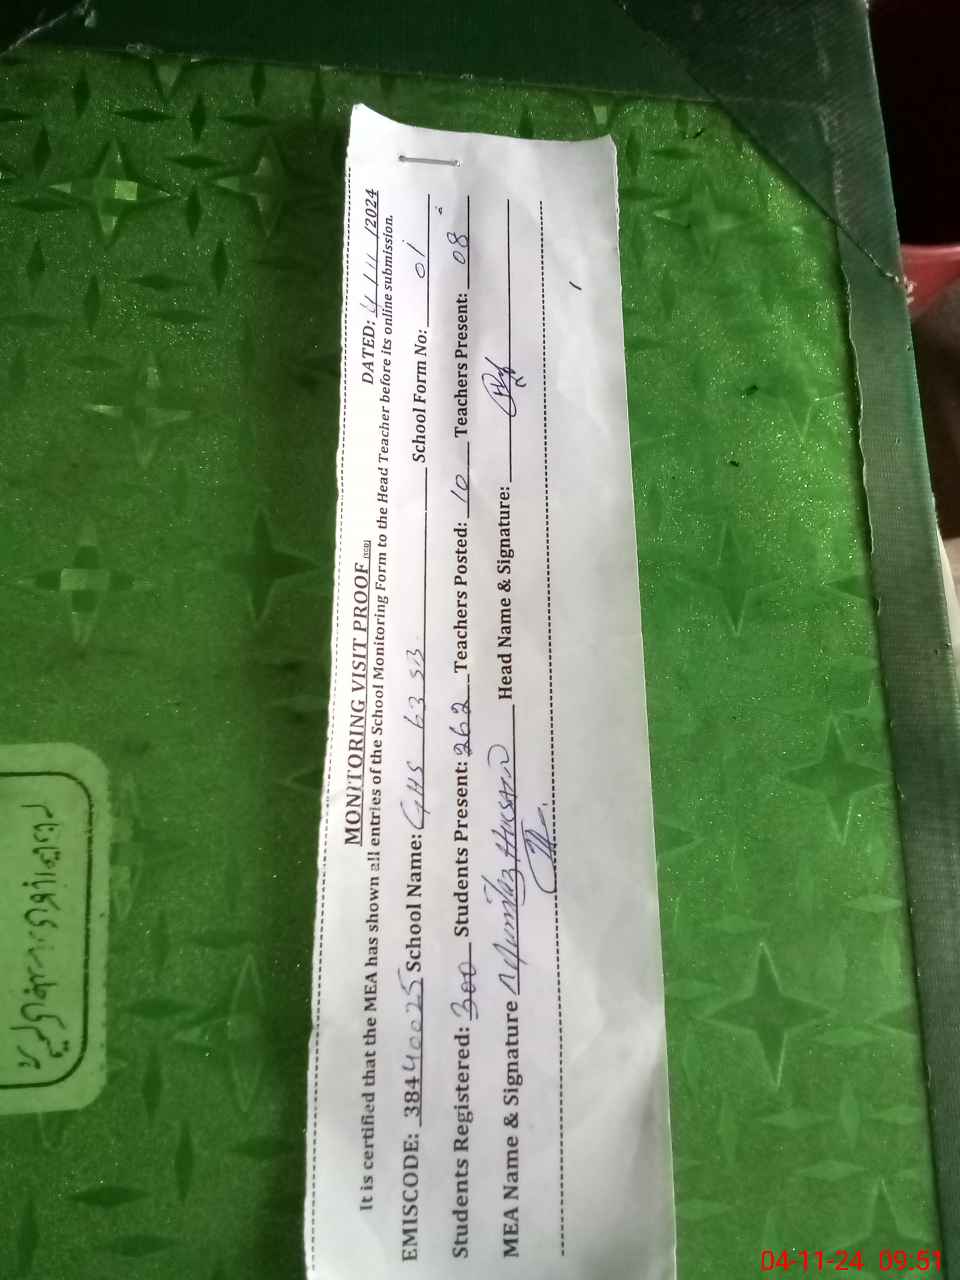 MONITORING VISIT PROOF
DATED: 4/11/2024
It is certified that the MEA has shown all entries of the School Monitoring Form to the Head Teacher before its online submission.
EMISCODE: 38440025 School Name: GHS 63 SB School Form No: 01
Students Registered: 300 Students Present: 262 Teachers Posted: 10 Teachers Present: 08
MEA Name & Signature Mumtaz Hussain Head Name & Signature:
04-11-24 09:51